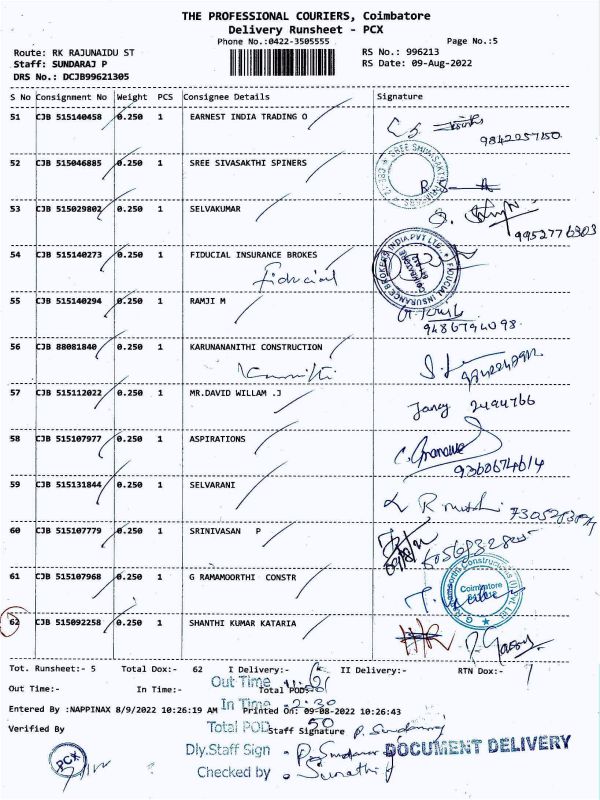 THE PROFESSIONAL COURIERS, Coimbatore
Delivery Runsheet - PCX
Phone No.:0422-3505555
Page No.:5
Route: RK RAJUNAIDU ST
RS No.: 996213
Staff: SUNDARAJ P
RS Date: 09-Aug-2022
DRS No.: DCJB99621305
S No Consignment No Weight PCS Consignee Details Signature
51 CJB 515140458 0.250 1 EARNEST INDIA TRADING O
9842257150
52 CJB 515046885 0.250 1 SREE SIVASAKTHI SPINERS
53 CJB 515029802 0.250 1 SELVAKUMAR
9952776303
54 CJB 515140273 0.250 1 FIDUCIAL INSURANCE BROKES
Fiducial
FIDUCIAL INSURANCE BROKERS INDIA PVT LTD.
COIMBATORE
55 CJB 515140294 0.250 1 RAMJI M
9486794098
56 CJB 88081840 0.250 1 KARUNANANITHI CONSTRUCTION
57 CJB 515112022 0.250 1 MR.DAVID WILLAM .J
Jancy 2494766
58 CJB 515107977 0.250 1 ASPIRATIONS
9360674614
59 CJB 515131844 0.250 1 SELVARANI
60 CJB 515107779 0.250 1 SRINIVASAN P
61 CJB 515107968 0.250 1 G RAMAMOORTHI CONSTR
Coimbatore
62 CJB 515092258 0.250 1 SHANTHI KUMAR KATARIA
Tot. Runsheet:- 5 Total Dox:- 62 I Delivery:- II Delivery:- RTN Dox:-
Out Time:- In Time:- Total PODS:-
Out Time
Entered By :NAPPINAX 8/9/2022 10:26:19 AM Printed On: 09-08-2022 10:26:43
In Time 2:30
Verified By Staff Signature
Total POD 50
P. Sundaraj
Dly.Staff Sign
DOCUMENT DELIVERY
Checked by
PCX